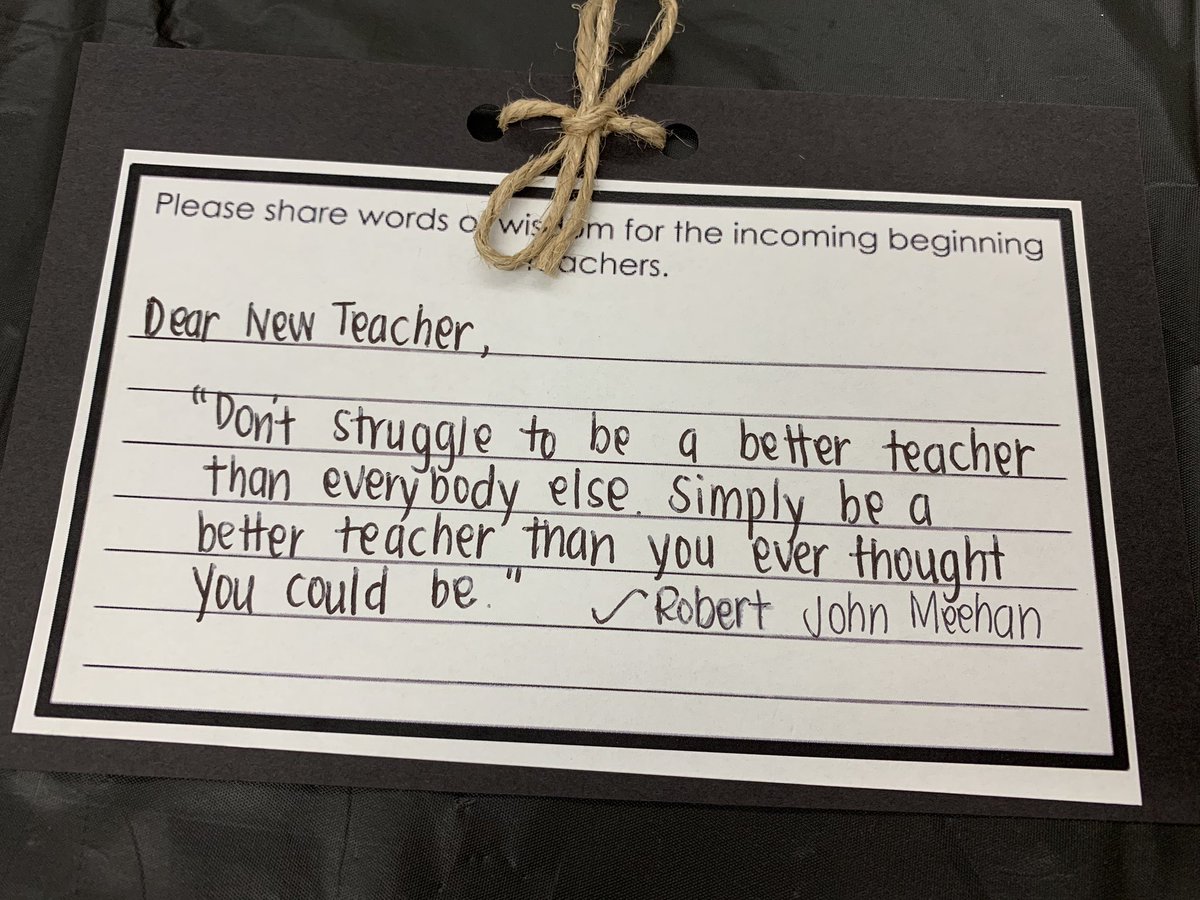 Please share words of wisdom for the incoming beginning
teachers.
Dear New Teacher,
"Don't struggle to be a better teacher
than everybody else. Simply be a
better teacher than you ever thought
you could be." ✓Robert John Meehan